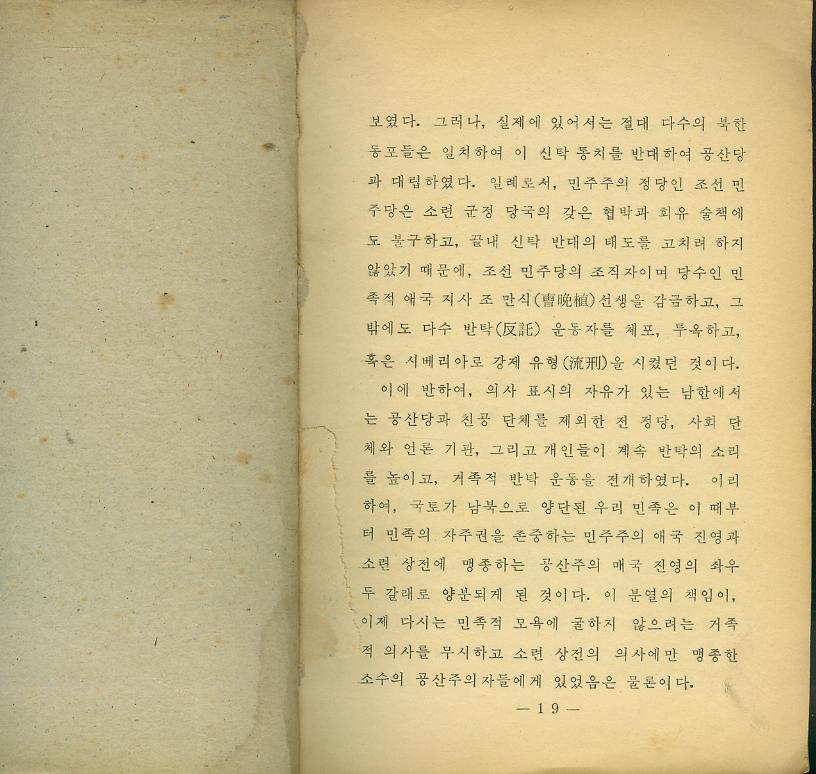 보였다. 그러나, 실제에 있어서는 절대 다수의 북한
동포들은 일치하여 이 신탁 통치를 반대하여 공산당
과 대립하였다. 일례로서, 민주주의 정당인 조선 민
주당은 소련 군정 당국의 갖은 협박과 회유 술책에
도 불구하고, 끝내 신탁 반대의 태도를 고치려 하지
않았기 때문에, 조선 민주당의 조직자이며 당수인 민
족적 애국 지사 조 만식(曹晩植)선생을 감금하고, 그
밖에도 다수 반탁(反託) 운동자를 체포, 투옥하고,
혹은 시베리아로 강제 유형(流刑)을 시켰던 것이다.
이에 반하여, 의사 표시의 자유가 있는 남한에서
는 공산당과 친공 단체를 제외한 전 정당, 사회 단
체와 언론 기관, 그리고 개인들이 계속 반탁의 소리
를 높이고, 거족적 반탁 운동을 전개하였다. 이리
하여, 국토가 남북으로 양단된 우리 민족은 이 때부
터 민족의 자주권을 존중하는 민주주의 애국 진영과
소련 상전에 맹종하는 공산주의 매국 진영의 좌우
두 갈래로 양분되게 된 것이다. 이 분열의 책임이,
이제 다시는 민족적 모욕에 굴하지 않으려는 거족
적 의사를 무시하고 소련 상전의 의사에만 맹종한
소수의 공산주의자들에게 있었음은 물론이다.
— 19 —